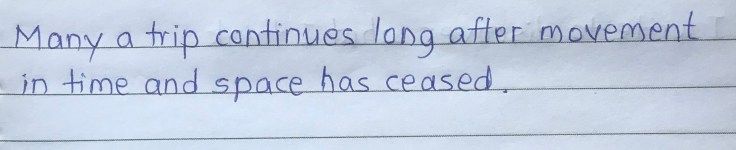 Many a trip continues long after movement
in time and space has ceased.